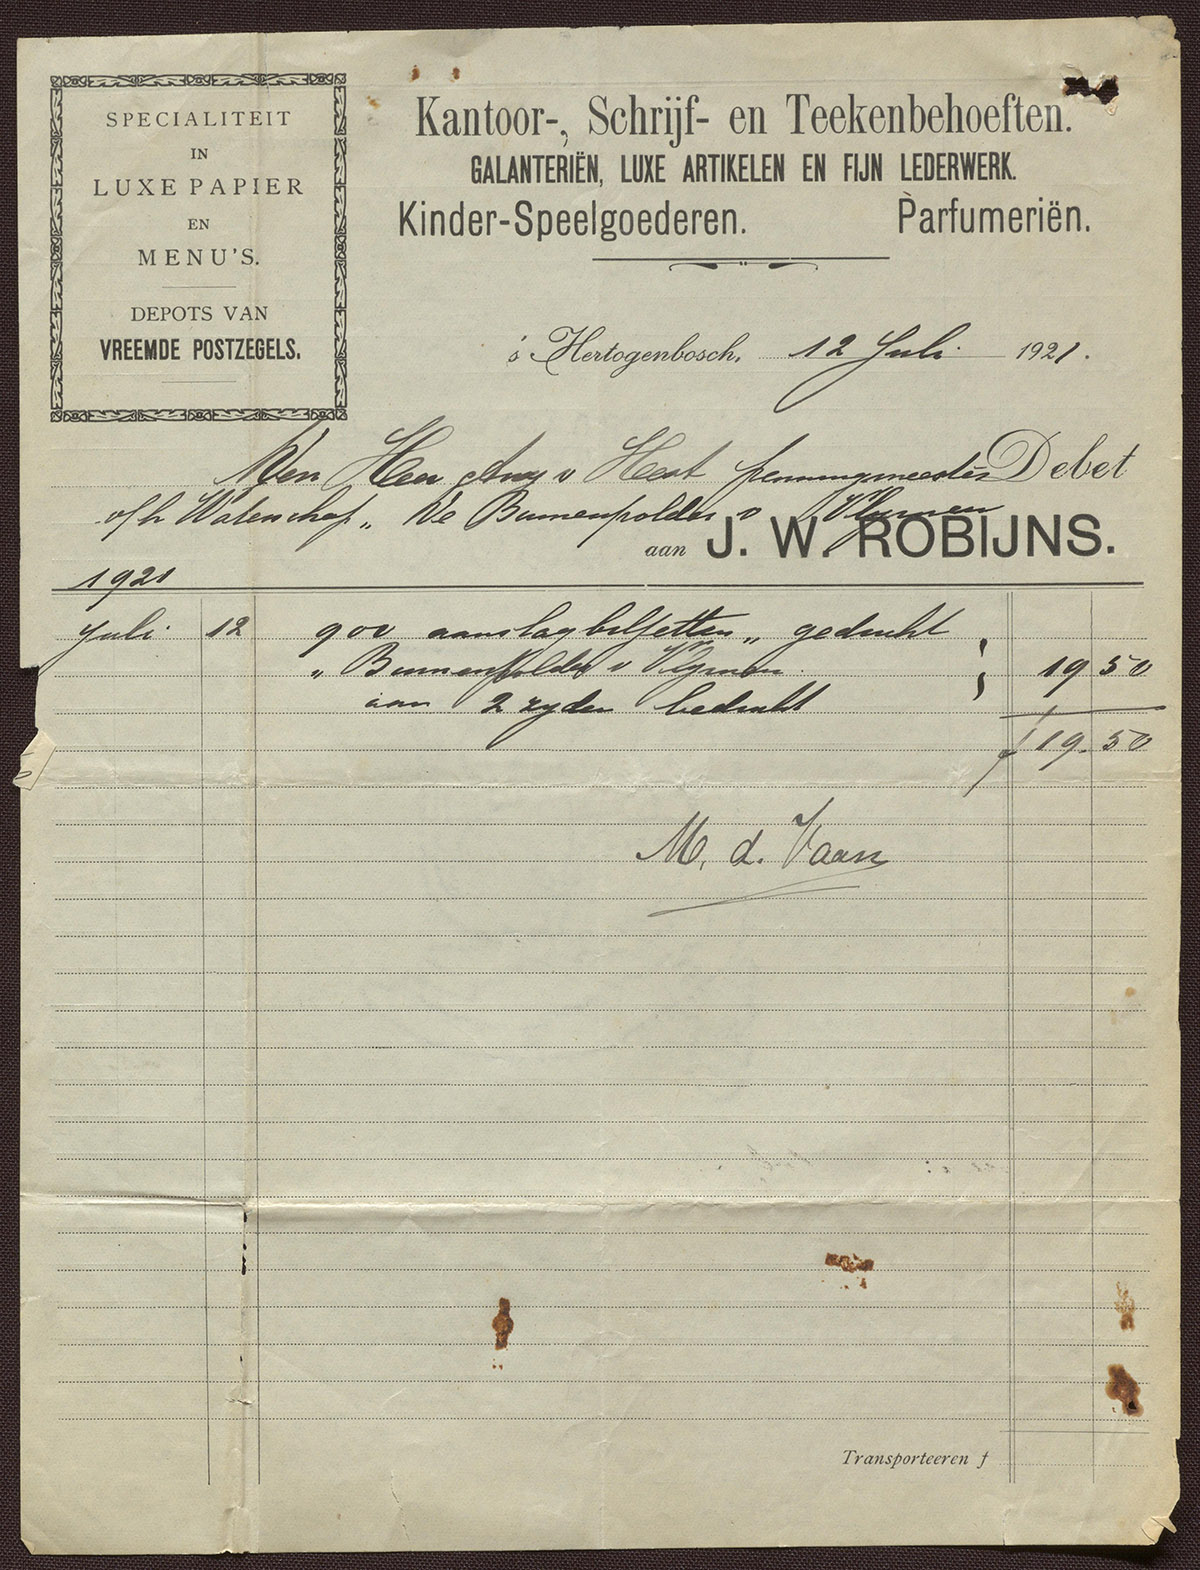 SPECIALITEIT
IN
LUXE PAPIER
EN
MENU'S.
DEPOTS VAN
VREEMDE POSTZEGELS.
Kantoor-, Schrijf- en Teekenbehoeften.
GALANTERIËN, LUXE ARTIKELEN EN FIJN LEDERWERK.
Kinder-Speelgoederen. Parfumeriën.
's Hertogenbosch, 12 Juli 1921.
Den Heer v Hest penningmeester Debet
v/h Waterschap „ De Binnenpolder v Vlymen
aan J. W. ROBIJNS.
1921
Juli 12 900 aanslagbiljetten „ gedrukt
„ Binnenpolder v Vlymen 19 50
aan 2 zyden bedrukt
f 19. 50
M. d. Vaan
Transporteeren f